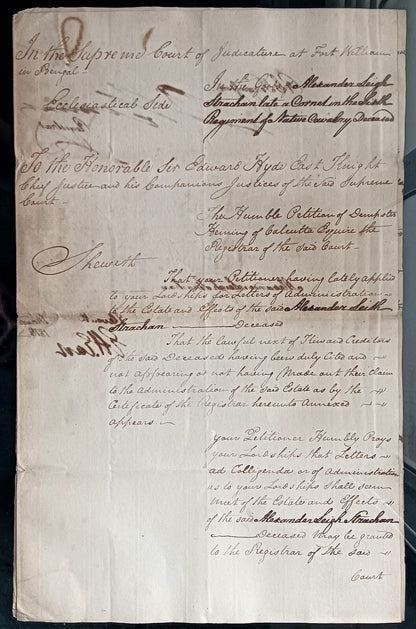 In the Supreme Court of Judicature at Fort William
in Bengal
In the Goods of Alexander Leigh
Ecclesiastical Side
Strachan late a Cornet in the Sixth
Regiment of Native Cavalry Deceased
To the Honorable Sir Edward Hyde East Knight
Chief Justice and his Companions Justices of the said Supreme
Court
The Humble Petition of Dempster
Heming of Calcutta Esquire the
Registrar of the said Court
Sheweth
That your Petitioner having lately applied
to your Lordships for Letters of Administration
to the Estate and Effects of the said Alexander Leith
Strachan Deceased
That the lawful next of Kin and Creditors
of the said Deceased having been duly Cited and
not appearing or not having made out their claim
to the Administration of the said Estate as by the
Certificate of the Registrar hereunto Annexed
appears
your Petitioner Humbly Prays
your Lordships that Letters
ad Colligenda or of Administration
as to your Lordships shall seem
meet of the Estate and Effects
of the said Alexander Leigh Strachan
Deceased may be granted
to the Registrar of the said
Court